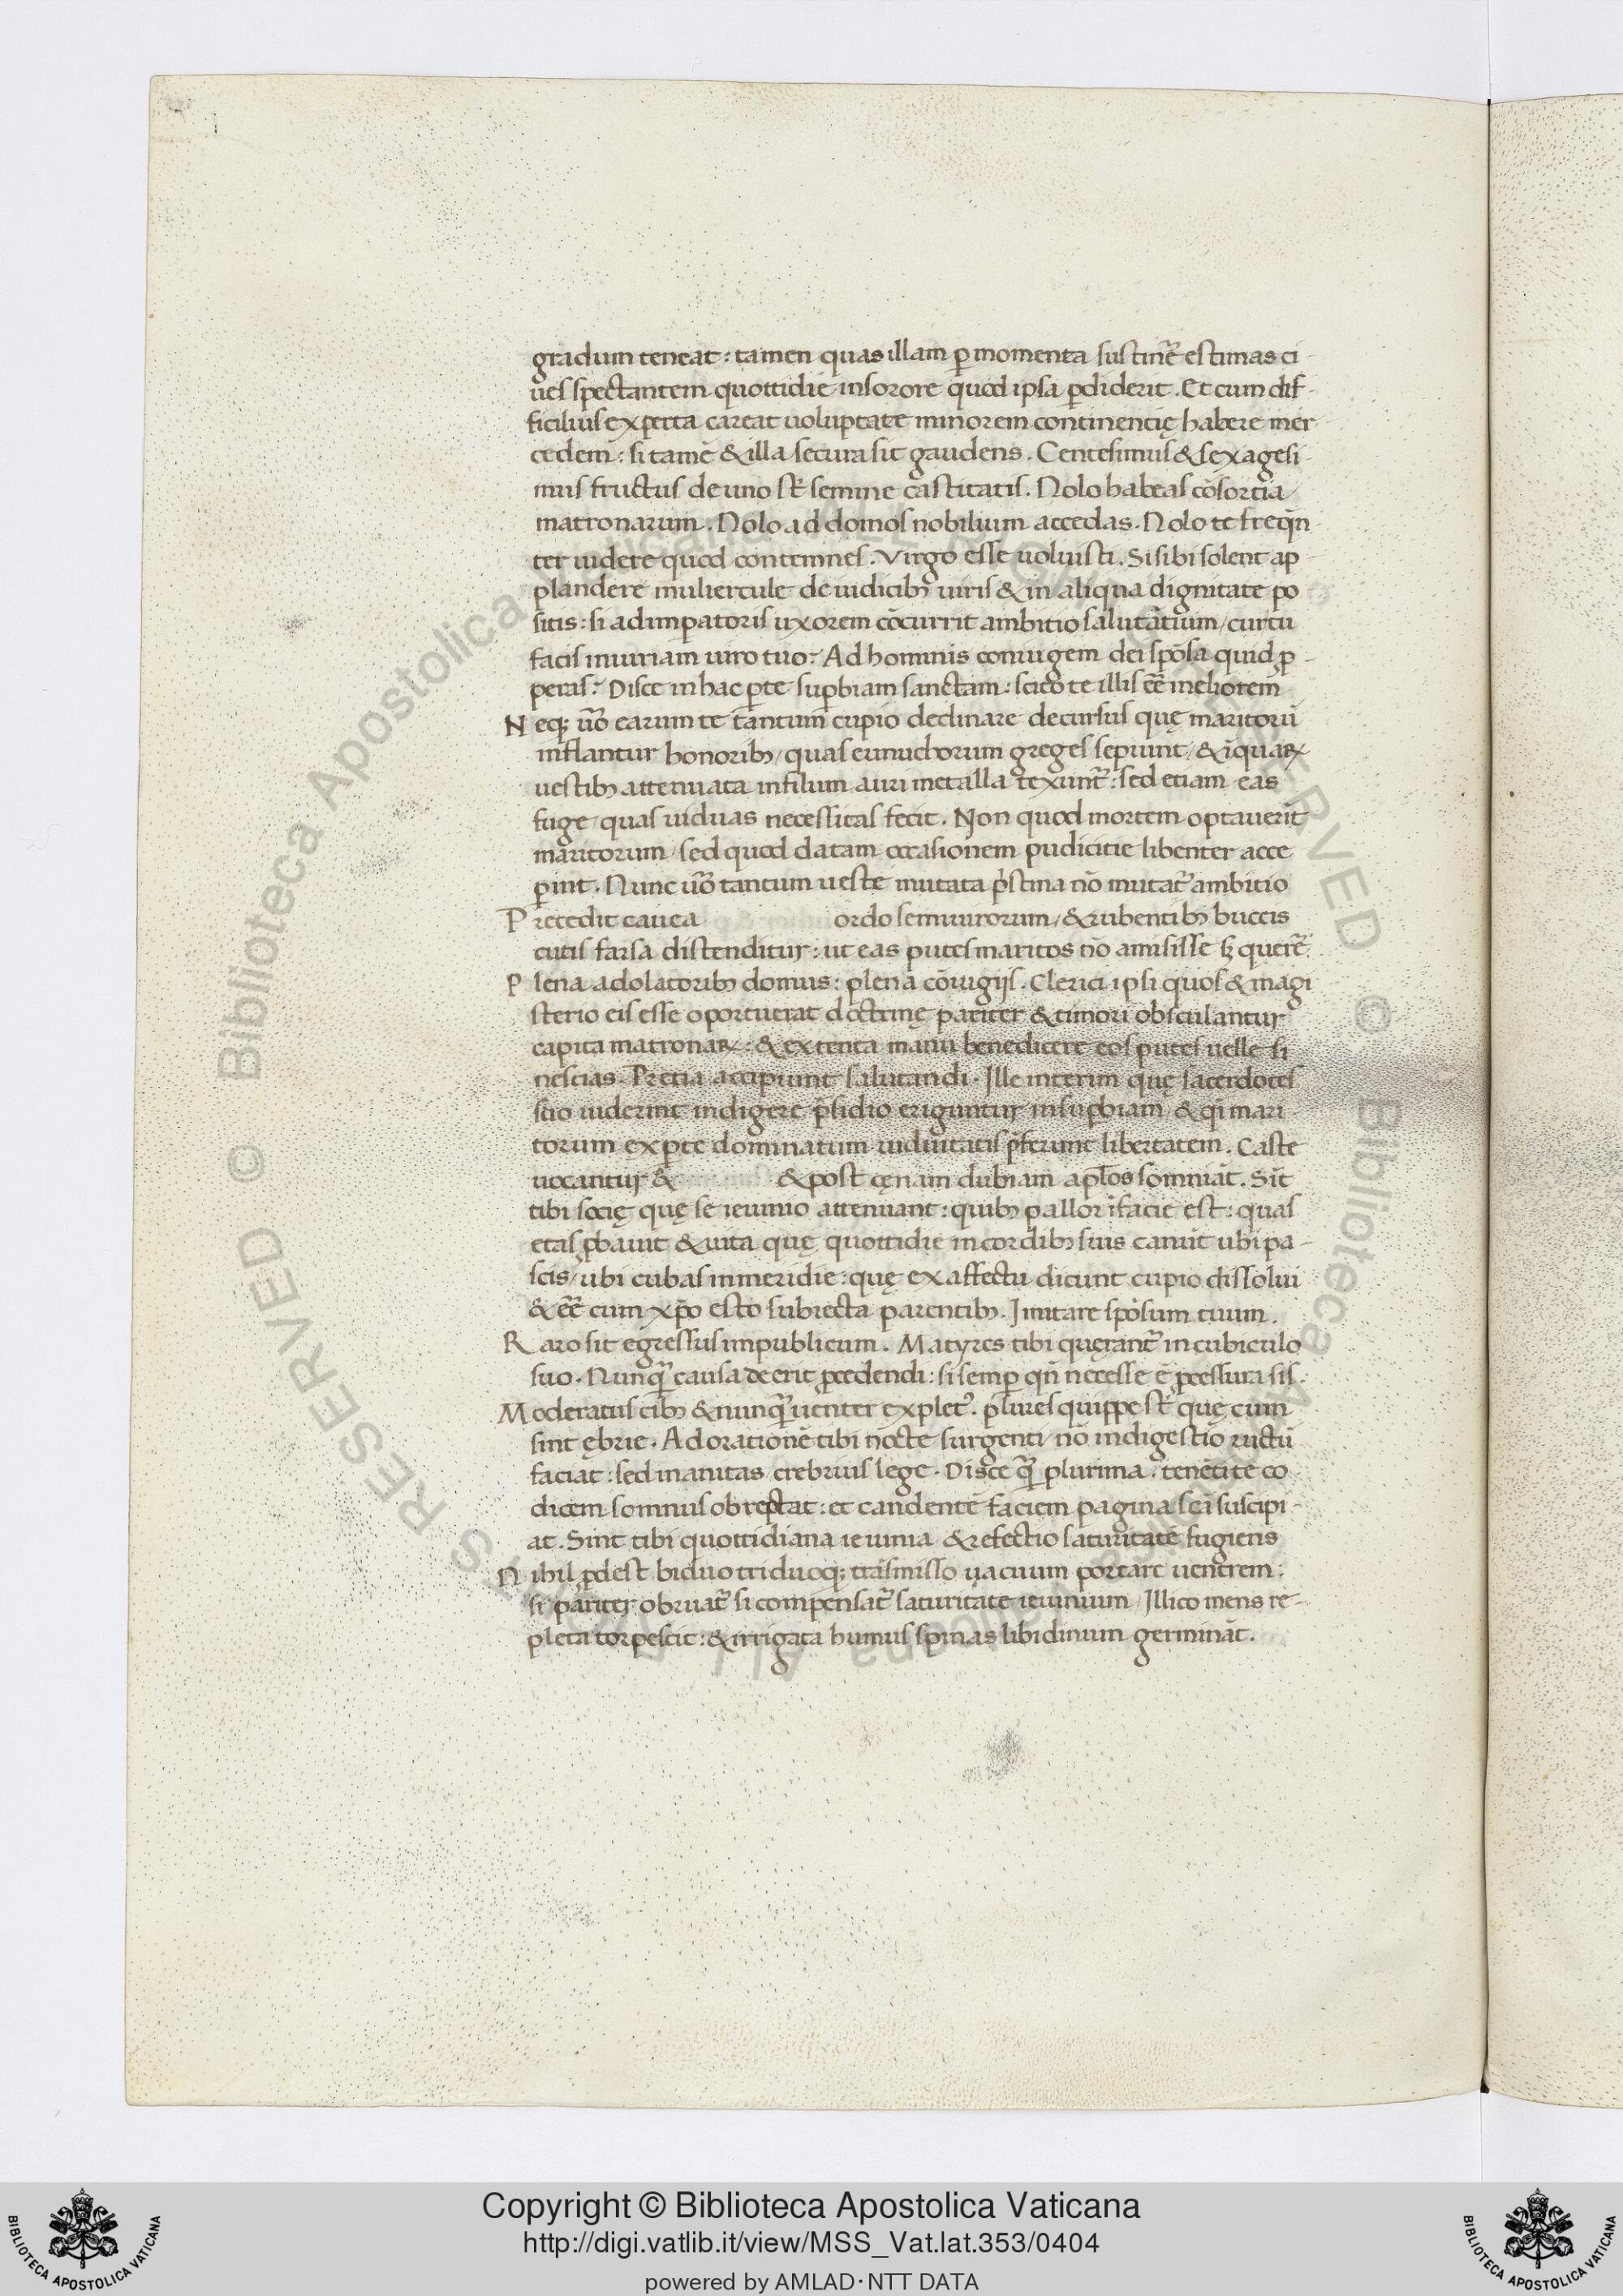 gradum teneat: tamen quas illam ꝑ momenta sustinē estimas ci-
ues spectantem quottidie in sorore quod ipsa ꝑdiderit. Et cum dif-
ficilius exꝑta careat uoluptate minorem continentię habere mer
cedem: si tamē & illa secura sit gaudens. Centesimus & sexagesi-
mus fructus de uno st̄ semine castitatis. Nolo habeas cōsortia
matronarum. Nolo ad domos nobilium accedas. Nolo te freq̄n
ter uidere quod contemnes. Virgo esse uoluisti. Si sibi solent ap
plandere muliercule de iudicibꝫ uiris & in aliqua dignitate po
sitis: si ad impatoris uxorem cōcurrit ambitio salutātium, cur tu
facis iniuriam uiro tuo? Ad hominis coniugem dei spōsa quid ꝓ-
peras? Disce in hac ꝑte suꝑbiam sanctam: scito te illis eē meliorem
Neqꝫ uo̅ earum te tantum cupio declinare decursus quę maritorū
inflantur honoribꝫ, quas eunuchorum greges sepiunt, & ī quaꝝ
uestibꝫ attenuata in filum auri metalla texunt̄: sed etiam eas
fuge quas uiduas necessitas fecit. Non quod mortem optauerīt
maritorum, sed quod datam occasionem pudicitie libenter acce
ꝑint. Nunc uo̅ tantum ueste mutata p̄stina nō mutat̄ ambitio
Precedit cauea ordo semiuirorum, & rubentibꝫ buccis
cutis farsa distenditur: ut eas putes maritos nō amisisse sꝫ querē.
Plena adolatoribꝫ domus: plena cōuigijs. Clerici ipsi quos & magi
sterio eis esse oportuerat doctrinę pariter & timori obsculantur
capita matronaꝝ: & extenta manu benedicere eos putes uelle si
nescias. Pretia accipiunt salutandi. Ille interim quę sacerdotes
suo uiderint indigere p̄sidio eriguntur in suꝑbiam & q̄ mari
torum exꝑte dominatum uiduitatis p̄ferunt libertatem. Caste
uocantur & & post cęnam dubiam apl̄os somniāt. Sīt
tibi socię quę se ieiunio attenuant: quibꝫ pallor ī facie est: quas
etas ꝓbauit & uita quę quottidie in cordibꝫ suis canūt ubi pa-
scis, ubi cubas in meridie: quę ex affectu dicunt cupio dissolui
& eē cum xp̄o esto subiecta parentibꝫ. Imitare spōsum tuum.
Raro sit egressus in publicum. Matyres tibi quęrant̄ in cubiculo
suo. Nunq̄ causa deerit ꝓcedendi: si semꝑ qn̄ necesse ē ꝓcessura sis.
Moderatus cibꝫ & nunq̄ uenter explet᷒. plures quippe st̄ quę cum
sint ębrie. Ad orationē tibi nocte surgenti, nō indigestio ructū
faciat: sed inanitas, crebrius lege. Disce q̄ plurima. tenēti te co
dicem somnus obreptat: et candentē faciem pagina sc̄a suscipi-
at. Sint tibi quottidiana ieiunia & refectio saturitatē fugiens
Nihil ꝓdest biduo triduoqꝫ trāsmisso uacuum portare uentrem:
si pariter obruat̄ si compensat̄ saturitate ieiunium, Illico mens re-
pleta torpescit: & irrigata humus spinas libidinum gerinināt.
Copyright © Biblioteca Apostolica Vaticana
http://digi.vatlib.it/view/MSS_Vat.lat.353/0404
powered by AMLAD·NTT DATA
BIBLIOTECA APOSTOLICA VATICANA
BIBLIOTECA APOSTOLICA VATICANA